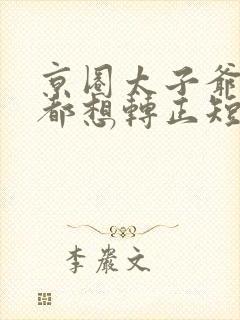 京圈太子爺
都想轉正短
李巖文